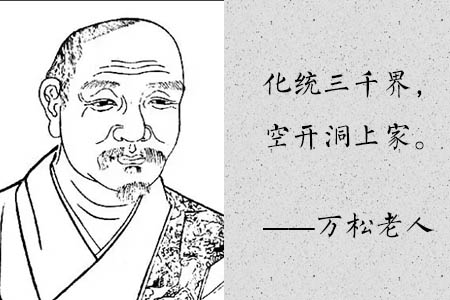 化统三千界，
空开洞上家。
——万松老人